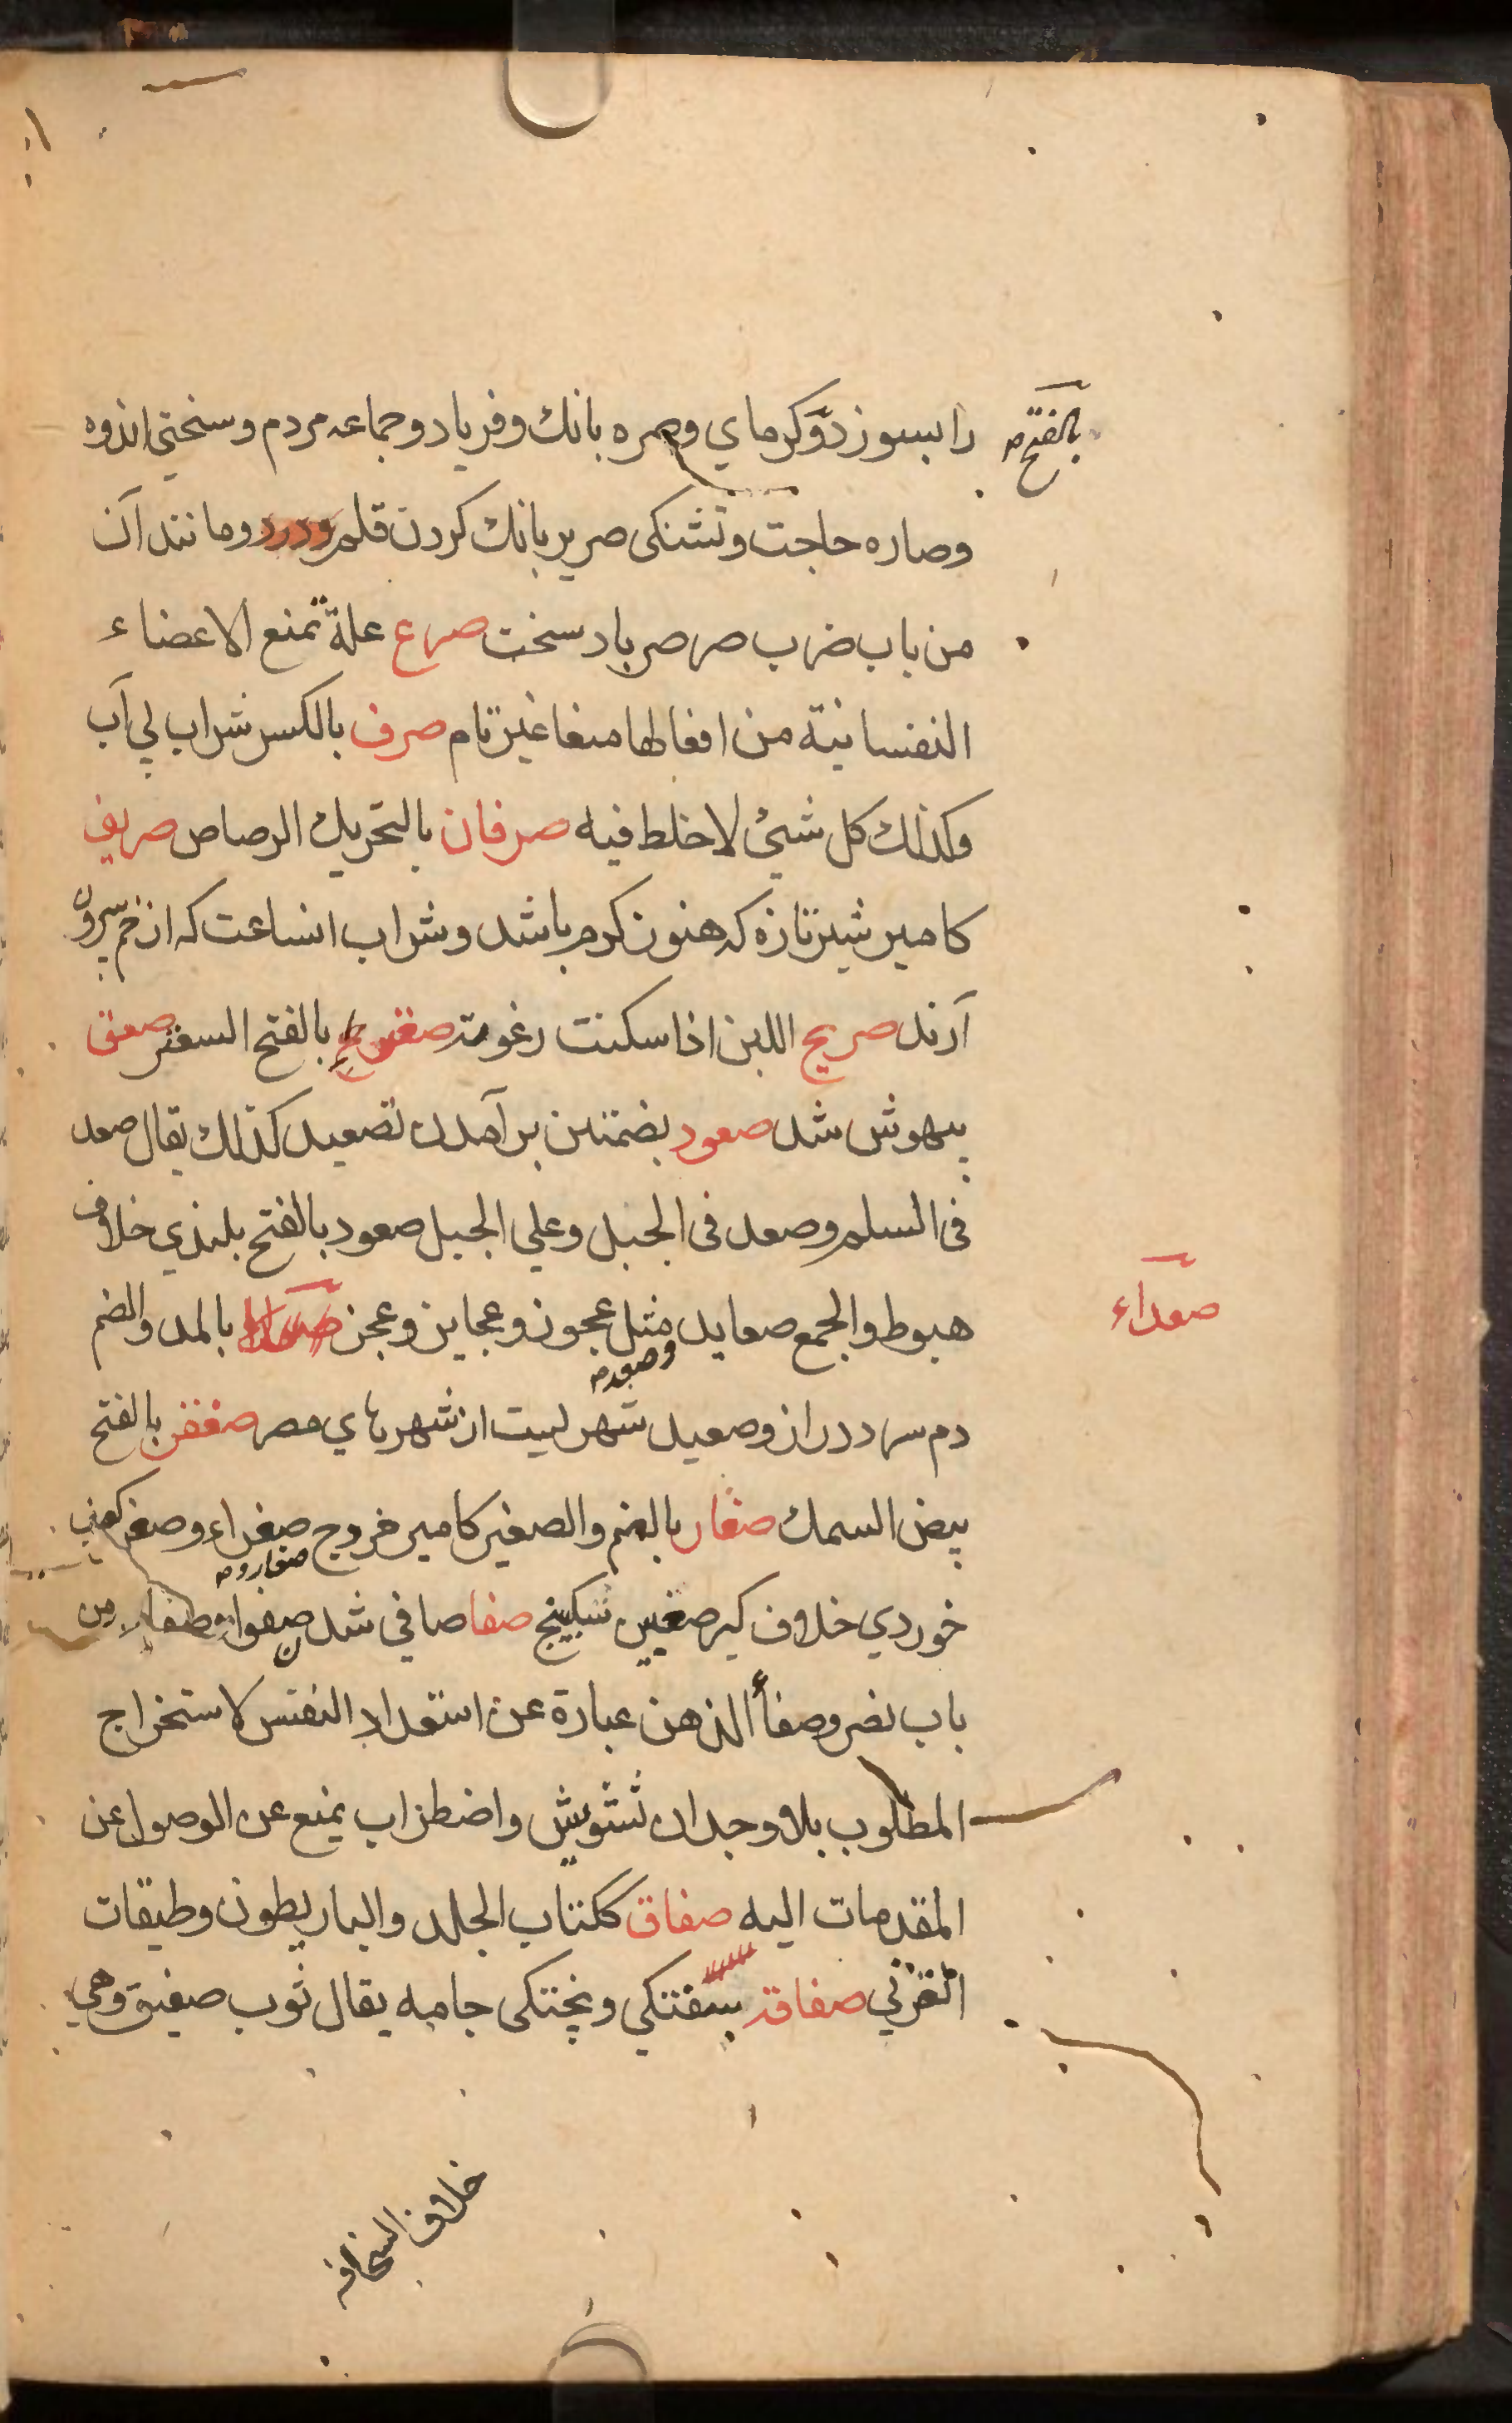 بالفتح
را بسوزد وگرماي وصره بانك وفرياد وجماعه مردم وسختي اندوه
وصاره حاجت وتشنكى صرير بانك كردن قلم ودرد ومانند آن
من باب ضرب صرصر باد سخت صرع علة تمنع الاعضاء
النفسانية من افعالها منعا غير تام صرف بالكسر شراب بي آب
وكذلك كل شئ لا خلط فيه صرفان بالتحريك الرصاص صريف
كامير شير تازه كه هنوز كرم باشد وشراب انساعت كه از خم بيرون
آرند صريح اللبن اذا سكنت رغوته بالفتح صعق
بيهوش شد صعود بضمتين برآمدن تصعيد كذلك يقال صعد
فى السلم وصعد فى الجبل وعلي الجبل صعود بالفتح بلندي خلاف
هبوط والجمع صعايد وصعد مثل عجوز وعجايز وعجز بالمد والضم
صعداء
دم سرد دراز وصعيد شهريست از شهرهاي مصر بالفتح
بيض السمك صغار بالضم والصغير كامير خروج صغراء وصغر كعنب
خوردي خلاف كبر سكبينج صفا صافي شد من
باب نصر وصفأ الذهن عبارة عن استعداد النفس لاستخراج
المطلوب بلا وجدان تشويش واضطراب يمنع عن الوصول عن
المقدمات اليه صفاق ككتاب الجلد بطون وطبقات
القرني صفاقة سفتكي وپختكى جامه يقال ثوب صفيق وهي
خلاف السخافه